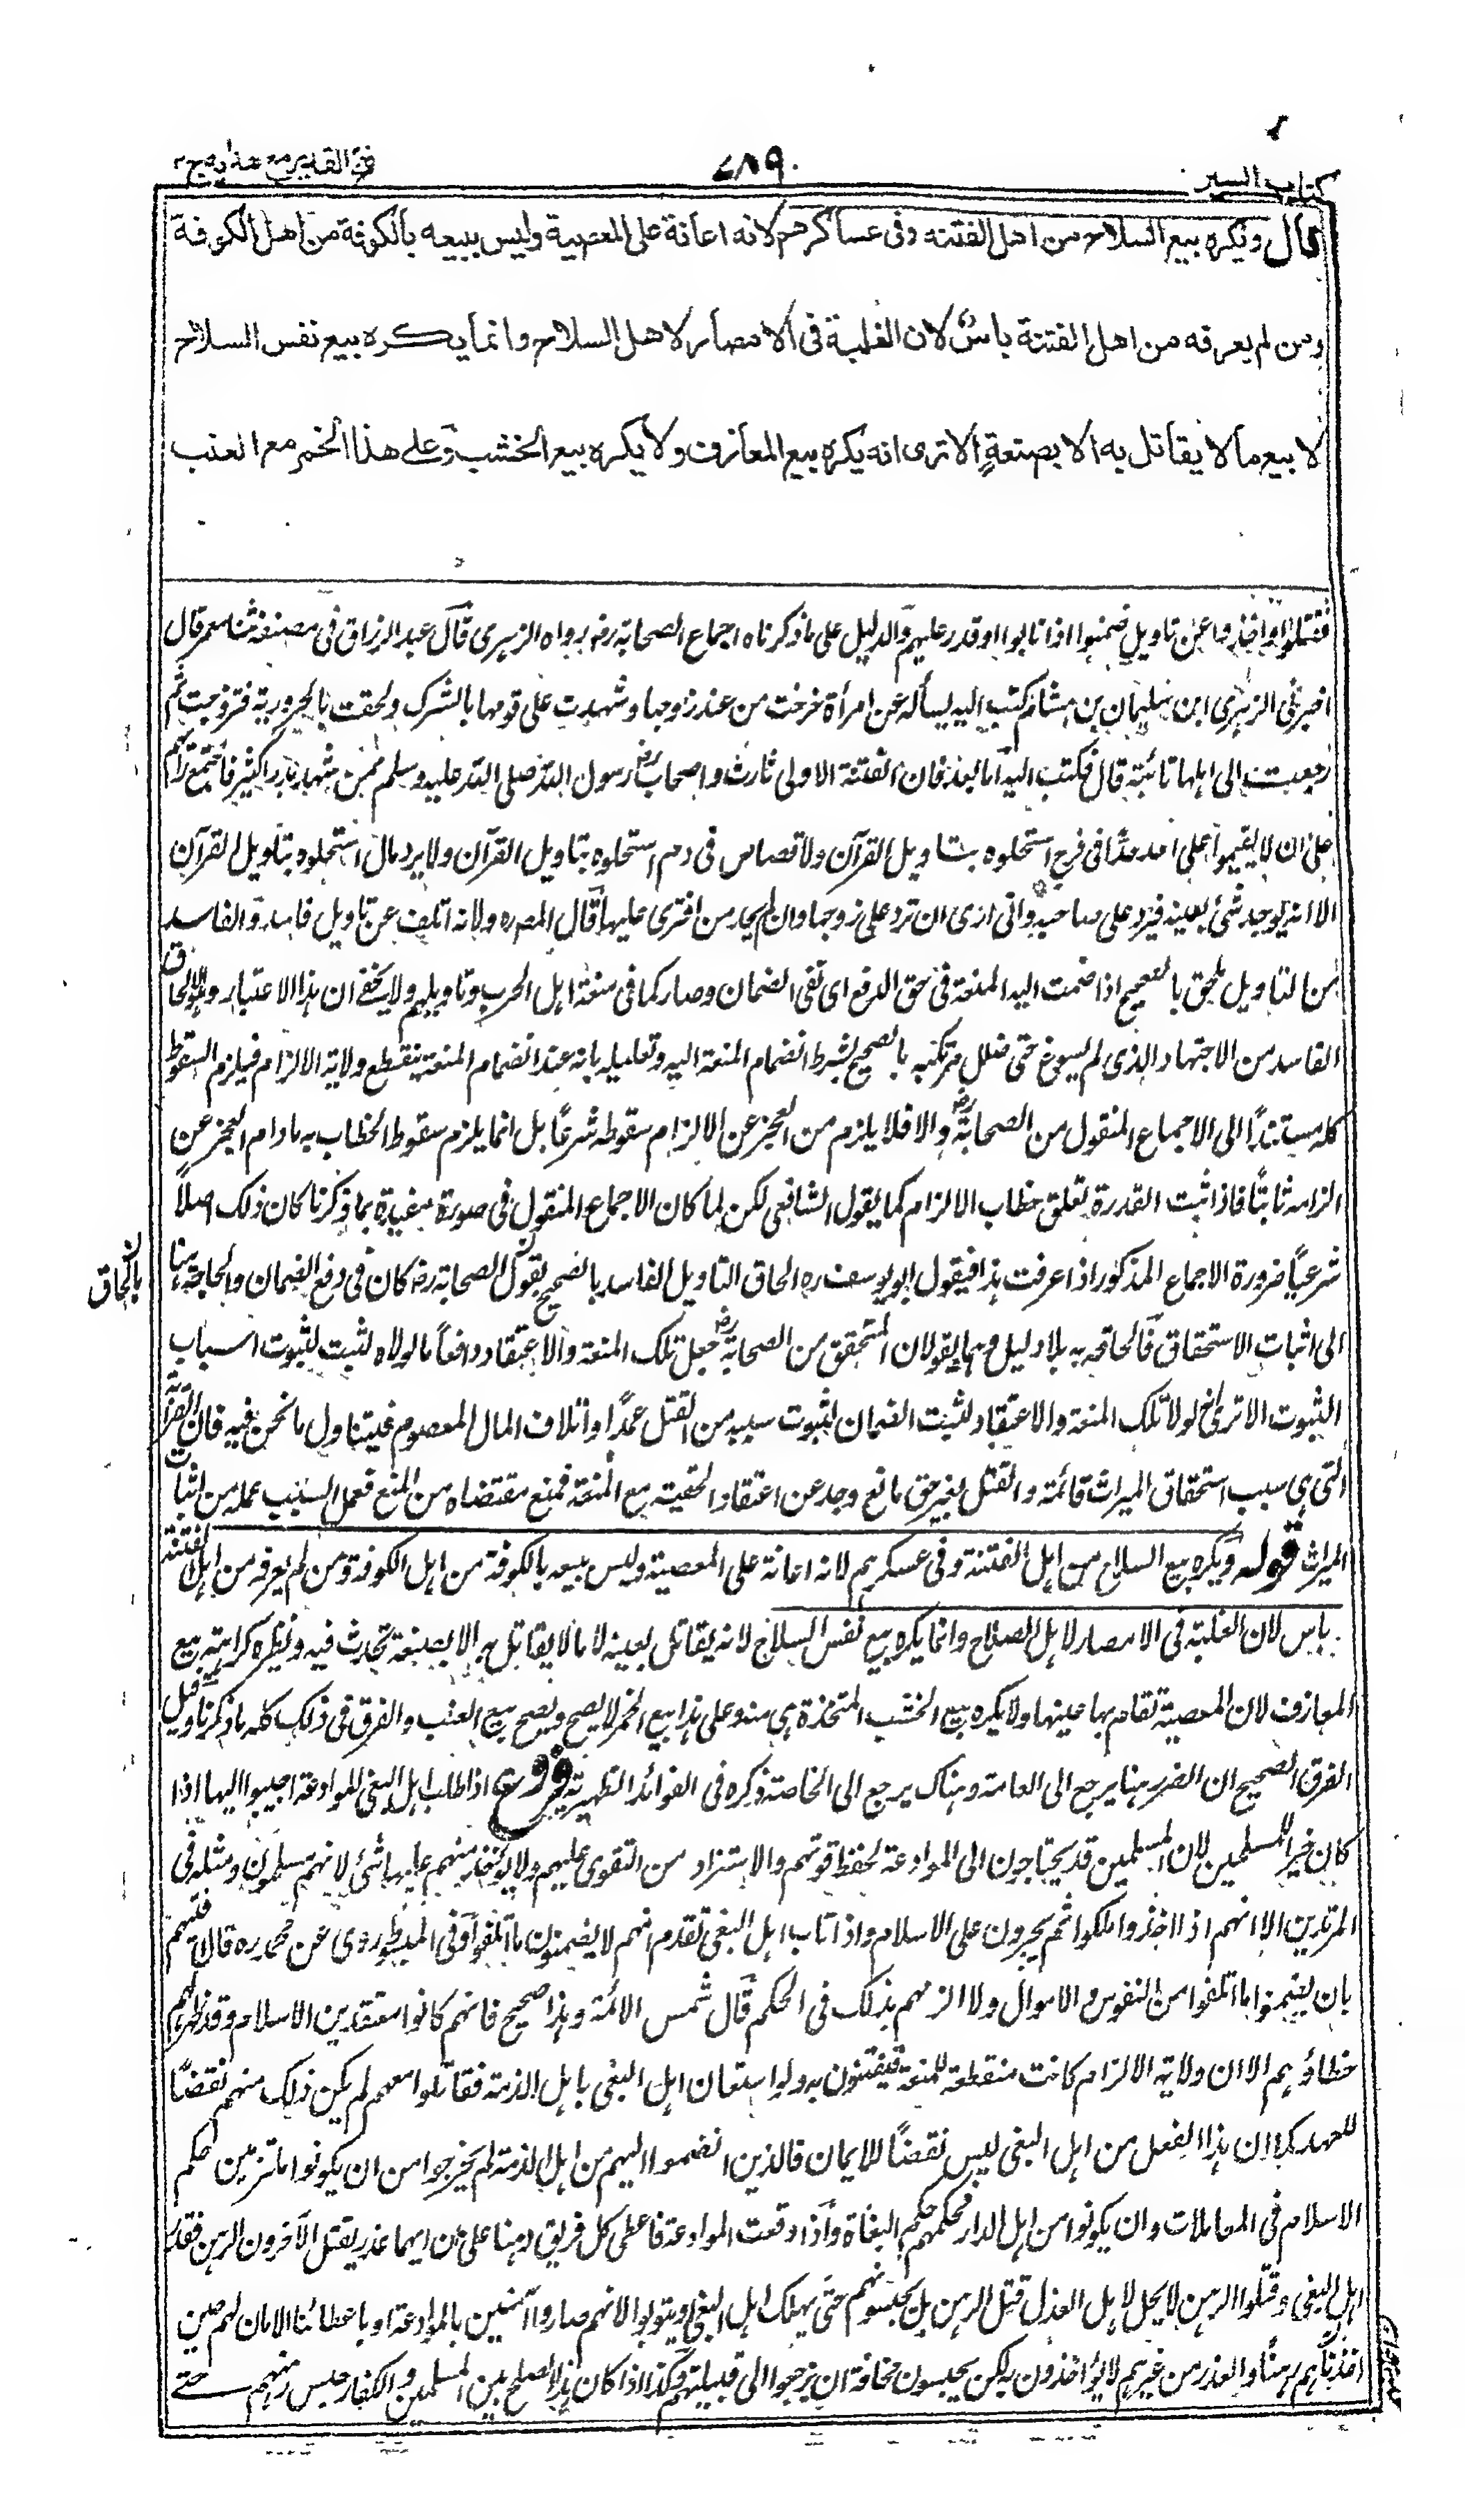 كتاب السير
٧٨٩
فتح القدير مع هدايه ج ٢
قال ويكره بيع السلاح من اهل الفتنة وفى عساكرهم لانه اعانة على المعصية وليس ببيعه بالكوفة من اهل الكوفة
ومن لم يعرفه من اهل الفتنة باس لان الغلبة فى الامصار لاهل السلاح وانما يكره بيع نفس السلاح
لا بيع ما لا يقاتل به الا بصنعةٍ الا ترى انه يكره بيع المعازف ولا يكره بيع الخشب وعلى هذا الخمر مع العنب
فقتلوا او اخذوا عن تاويل ضمنوا اذا تابوا او قدر عليهم والدليل على ما ذكرناه اجماع الصحابة رضـ رواه الزہرى قال عبد الرزاق فى مصنفه ثنا معمر قال
اخبرنى الزہرى ان سليمان بن ہشام كتب اليه يسأله عن امرأة خرجت من عند زوجہا وشہدت على قومہا بالشرك ولحقت بالحرورية فتزوجت ثم
رجعت الى اہلہا تائبة قال فكتب اليه اما بعد فان الفتنة الاولى ثارت واصحاب رسول الله صلى الله عليه وسلم ممن شہد بدرا كثير فاجتمع رأيہم
على ان لا يقيموا على احد حدًا فى فرج استحلوه بتاويل القرآن ولا قصاص فى دم استحلوه بتاويل القرآن ولا يرد مال استحلوه بتاويل القرآن
الا ان يوجد شئ بعينه فيرد على صاحبه وانى ارى ان ترد على زوجہا وان لم يحد من افترى عليہا قال المصـ رہ ولانه اتلف عن تاويل فاسد والفاسد
من التاويل ملحق بالصحيح اذا ضمت اليه المنعة فى حق الدفع اى نفى الضمان وصار كما فى منعة اہل الحرب وتاويلہم ولا يخفے ان ہذا الاعتبار وہو الحاق
الفاسد من الاجتہاد الذى لم يسوغ حتى ضلل مرتكبه بالصحيح بشرط انضمام المنعة اليه وتعليله بانه عند انضمام المنعة ينقطع ولاية الالزام فيلزم السقوط
كله مستندًا الى الاجماع المنقول من الصحابة رضـ والا فلا يلزم من العجز عن الالزام سقوطه شرعًا بل انما يلزم سقوط الخطاب به ما دام العجز عن
الزامه ثابتًا فاذا ثبت القدرة تعلق خطاب الالزام كما يقول الشافعى لكن لما كان الاجماع المنقول فى صورة مقيدة بما ذكرنا كان ذلك اصلاً
شرعيًا ضرورة الاجماع المذكور اذا عرفت ہذا فيقول ابو يوسف رہ الحاق التاويل الفاسد بالصحيح بقول الصحابة رضـ كان فى دفع الضمان والحاجة ہہنا
بالحاق
الى اثبات الاستحقاق فالحاقه به بلا دليل وہما يقولان المتحقق من الصحابة رضـ جعل تلك المنعة والاعتقاد دافعًا ما لولاه لثبت لثبوت اسباب
الثبوت الا ترى انه لولا تلك المنعة والاعتقاد لثبت الضمان لثبوت سببه من القتل عمدًا واتلاف المال المعصوم فيتناول ما نحن فيه فان القرابة
التى ہى سبب استحقاق الميراث قائمة والقتل بغير حق مانع وجد عن اعتقاد الحقية مع المنعة فمنع مقتضاه من المنع فعمل السبب عمله من اثبات
الميراث قوله ويكره بيع السلاح من اہل الفتنة وفى عسكرہم لانه اعانة على المعصية وليس بيعه بالكوفة من اہل الكوفة ومن لم يعرفه من اہل الفتنة
باس لان الغلبة فى الامصار لاہل الصلاح وانما يكره بيع نفس السلاح لانه يقاتل بعينه لا ما لا يقاتل به الا بصنعة تحدث فيه ونظيره كراہية بيع
المعازف لان المعصية تقام بہا عينہا ولا يكره بيع الخشب المتخذة ہى منه وعلى ہذا بيع الخمر لا يصح ويصح بيع العنب والفرق فى ذلك كله ما ذكرنا وقيل
الفرق الصحيح ان الضرر ہنا يرجع الى العامة وہناك يرجع الى الخاصة ذكره فى الفوائد الظہيرية فروع اذا طلب اہل البغى الموادعة اجيبوا اليہا اذا
كان خيرا للمسلمين لان المسلمين قد يحتاجون الى الموادعة لحفظ قوتہم والاستزاد من التقوى عليہم ولا يؤخذ منہم عليہا شئ لانہم مسلمون ومثله فى
المرتدين الا انہم اذا اخذوا ملكوا ثم يجبرون على الاسلام واذا تاب اہل البغى تقدم انہم لا يضمنون ما اتلفوا وفى المبسوط روى عن محمد رہ قال افتيہم
بان يضمنوا ما اتلفوا من النفوس والاموال ولا الزمہم بذلك فى الحكم قال شمس الائمة وہذا صحيح فانہم كانوا معتقدين الاسلام وقد ظہر لہم
خطاؤہم الا ان ولاية الالزام كانت منقطعة للمنعة فيفتون به ولو استعان اہل البغى باہل الذمة فقاتلوا معہم لم يكن ذلك منہم نقضًا
للعہد كما ان ہذا الفعل من اہل البغى ليس نقضًا للايمان فالذين انضموا اليہم من اہل الذمة لم يخرجوا من ان يكونوا ملتزمين حكم
الاسلام فى المعاملات وان يكونوا من اہل الدار فحكمہم حكم البغاة واذا وقعت الموادعة فاعطى كل فريق رہنا على ان ايہما غدر يقتل الآخرون الرہن فغدر
اہل البغى وقتلوا الرہن لا يحل لاہل العدل قتل الرہن بل يحبسونہم حتى يہلك اہل البغى او يتوبوا لانہم صاروا آمنين بالموادعة او باعطائنا الامان لہم حين
اخذناہم رہنًا والغدر من غيرہم لا يؤاخذون به لكن يحبسون مخافة ان يرجعوا الى قبيلتہم وكذا اذا كان ہذا الصلح بين المسلمين والكفار حبس رہنہم حتے